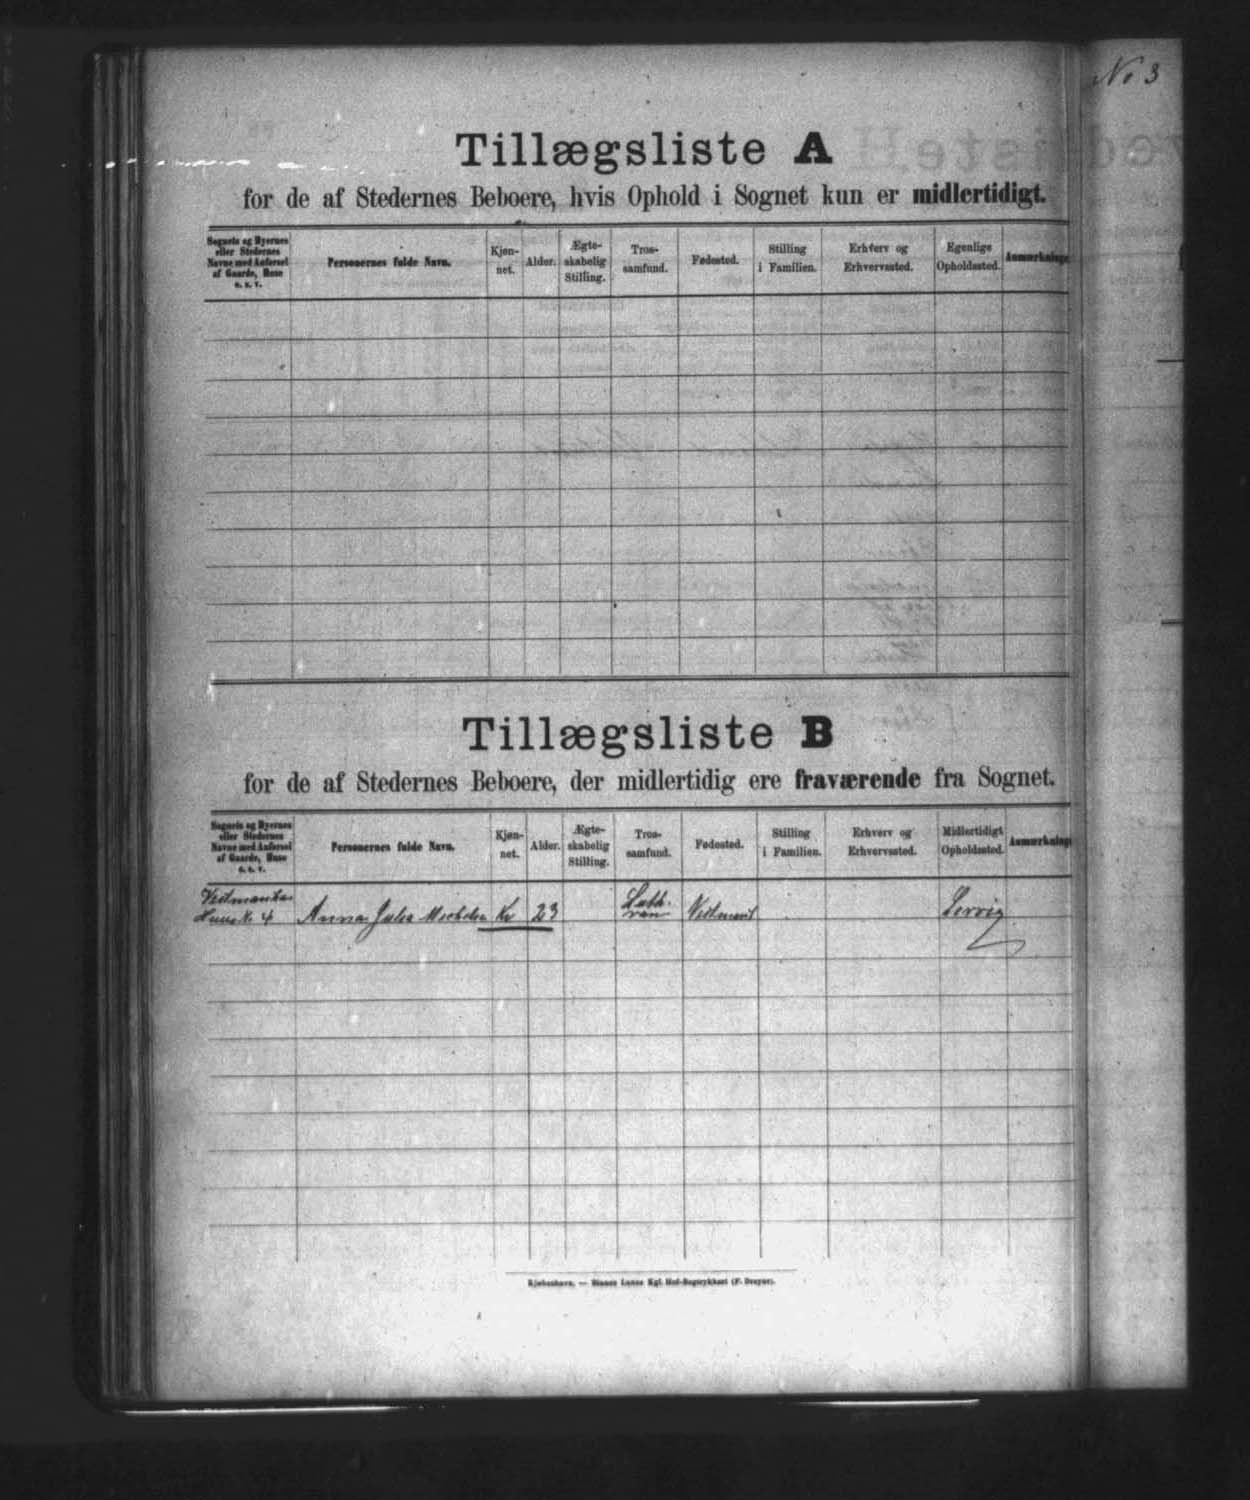 No 3
Tillægsliste A
for de af Stedernes Beboere, hvis Ophold i Sognet kun er midlertidigt.
Sognets og Byernes
eller Stedernes
Navne med Anførsel
af Gaarde, Huse
o. s. v.
Personernes fulde Navn.
Kjøn-
net.
Alder.
Ægte-
skabelig
Stilling.
Tros-
samfund.
Fødested.
Stilling
i Familien.
Erhverv og
Erhvervssted.
Egenlige
Opholdssted.
Anmærkninge
Tillægsliste B
for de af Stedernes Beboere, der midlertidig ere fraværende fra Sognet.
Sognets og Byernes
eller Stedernes
Navne med Anførsel
af Gaarde, Huse
o. s. v.
Personernes fulde Navn.
Kjøn-
net.
Alder.
Ægte-
skabelig
Stilling.
Tros-
samfund.
Fødested.
Stilling
i Familien.
Erhverv og
Erhvervssted.
Midlertidigt
Opholdssted.
Anmærkninge
4
Anna
Kv
23
Luth-
ran
Vestmanh
Kjøbenhavn. — Bianco Lunos Kgl. Hof-Bogtrykkeri (F. Dreyer).